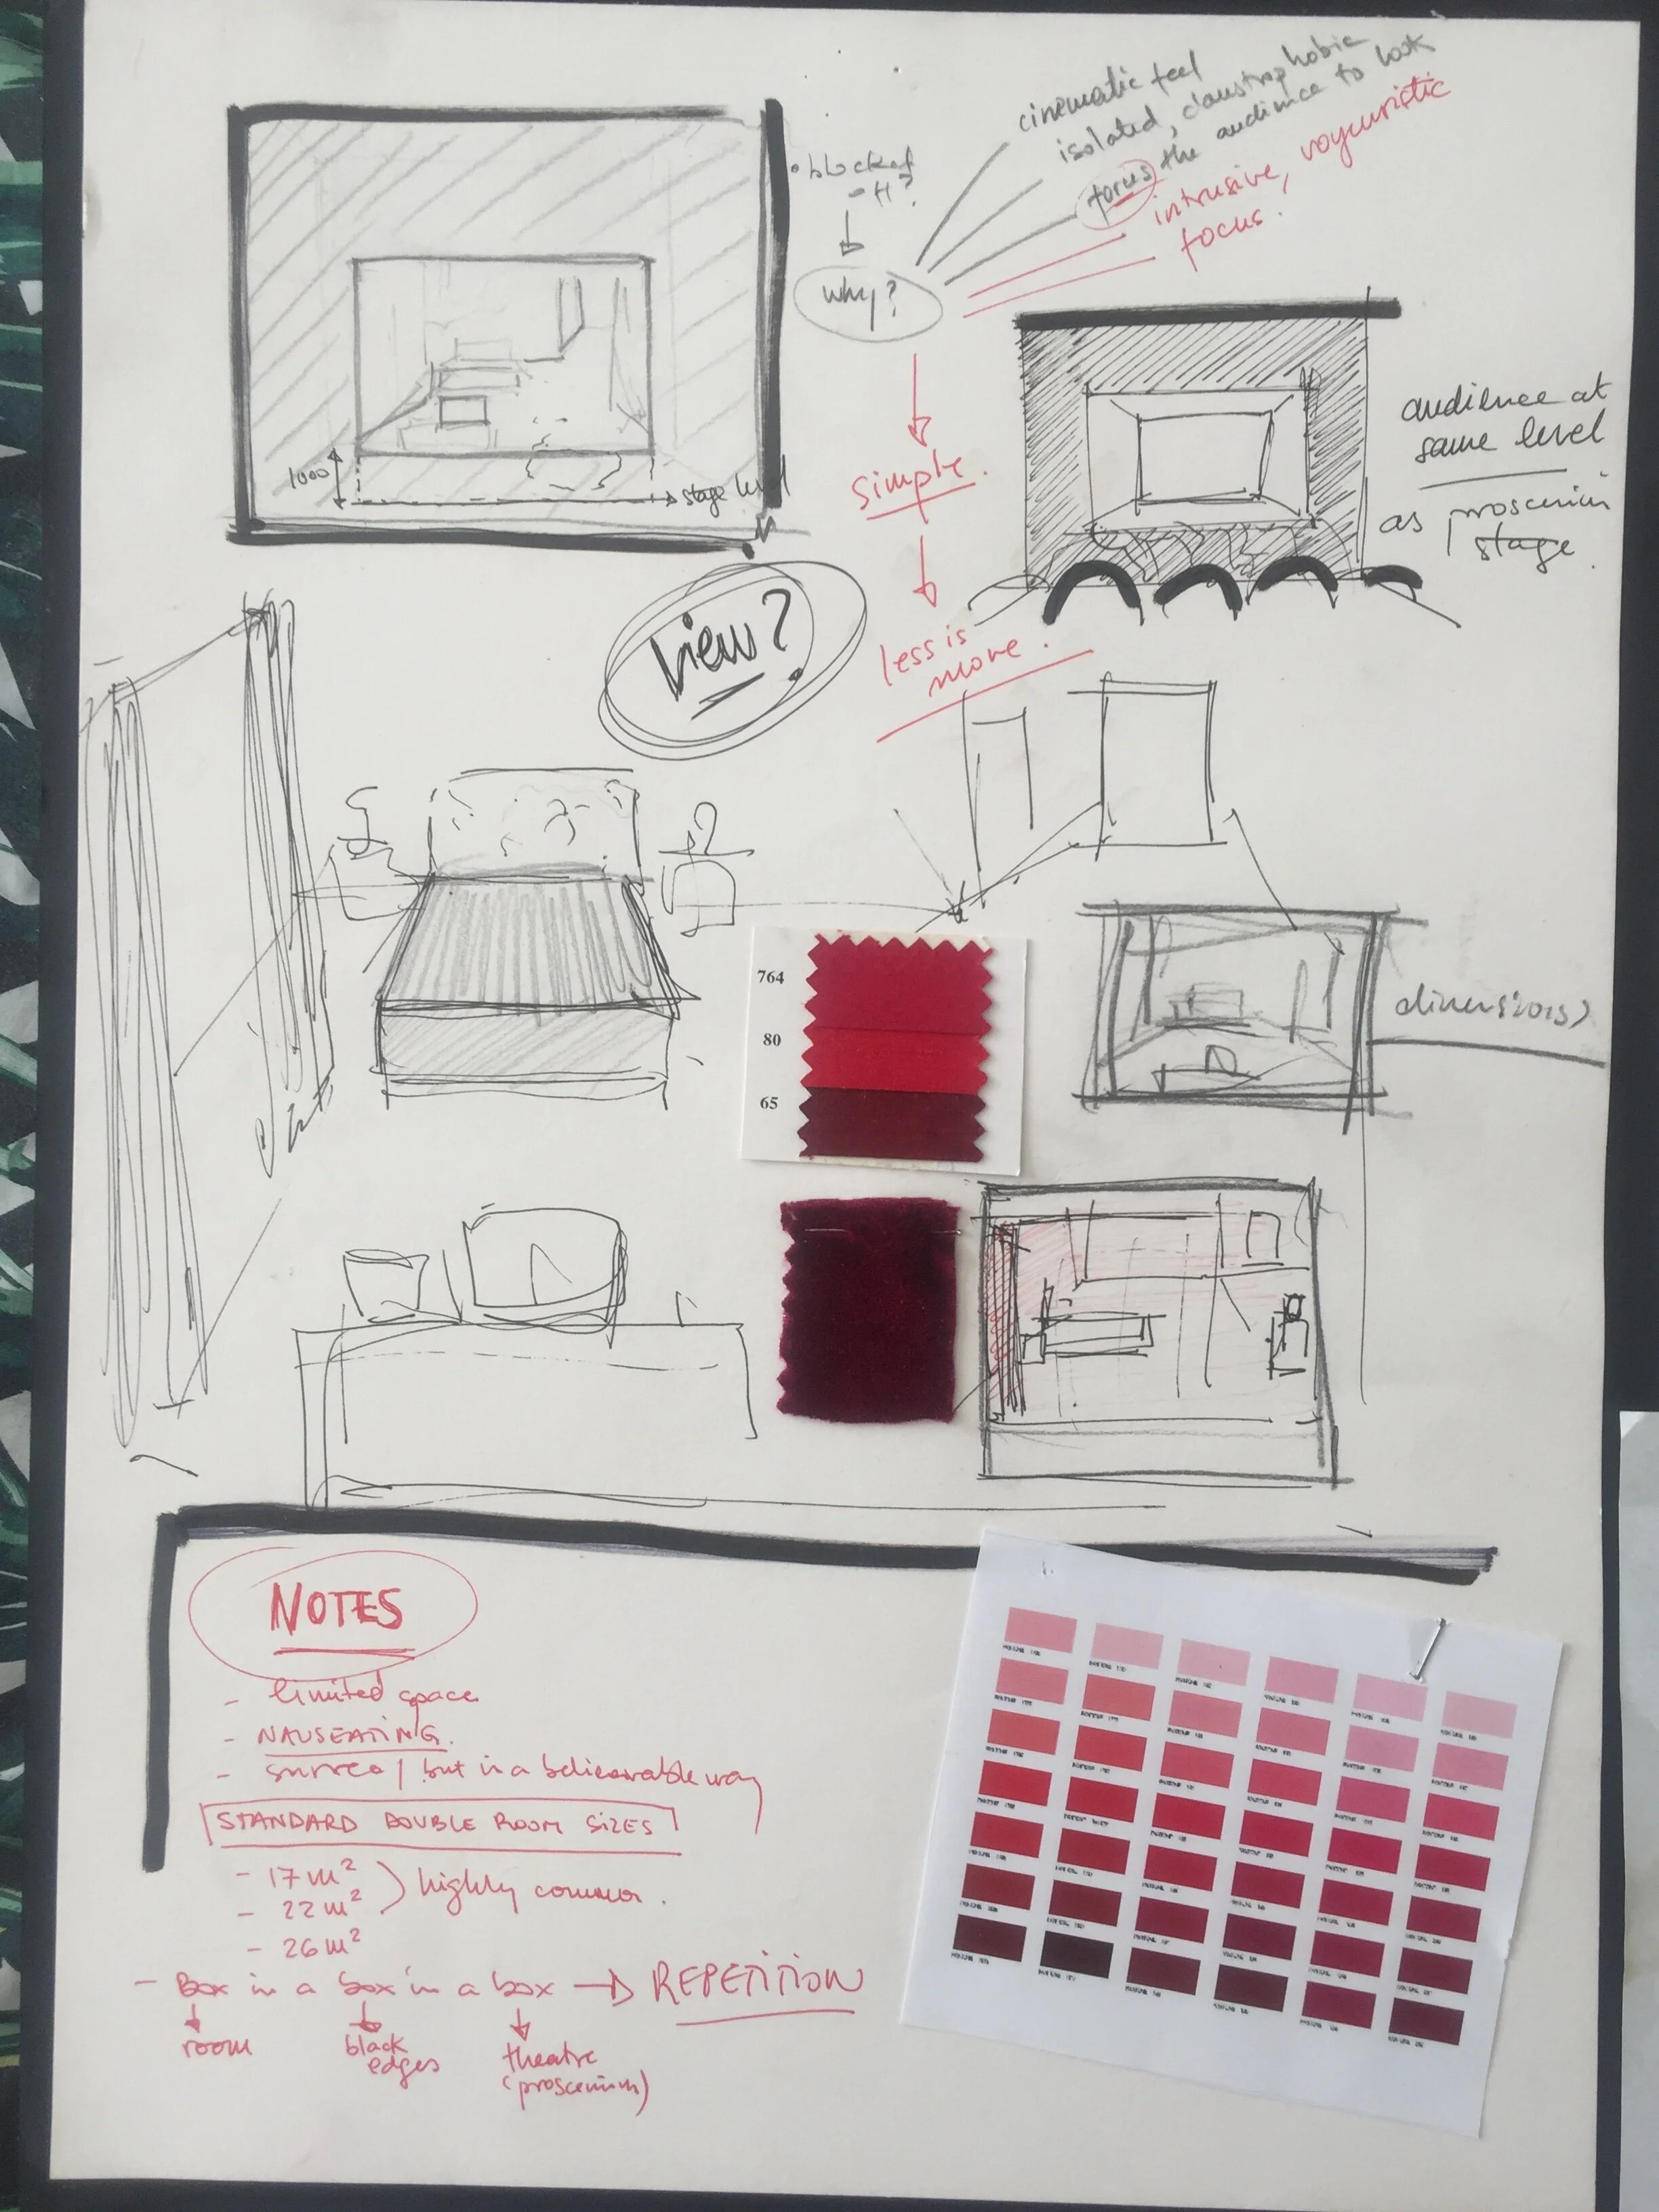 cinematic feel
isolated, claustrophobic
focus the audience to look
intrusive, voyeuristic
focus.
blockof
why?
simple.
less is
more.
1000
stage level
audience at
same level
as proscenium
stage.
view?
764
80
65
dimensions
NOTES
- limited space
- NAUSEATING.
- surreal but in a believable way
STANDARD DOUBLE ROOM SIZES
- 17 m²
- 22 m²
highly common.
- 26 m²
- Box in a box in a box → REPETITION
room
black
edges
theatre
(proscenium)